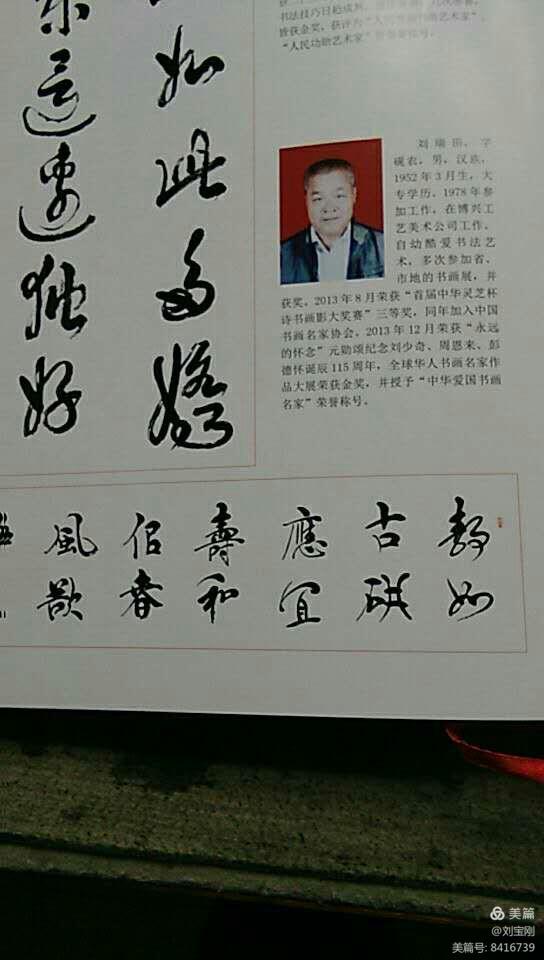 书法技巧日趋成熟
皆获金奖，获评为“人民
“人民功勋艺术家”
如此多嬌
這邊獨好
刘瑞田，字
砚农，男，汉族，
1952年3月生，大
专学历。1978年参
加工作，在博兴工
艺美术公司工作。
自幼酷爱书法艺
术，多次参加省、
市地的书画展，并
获奖。2013年8月荣获“首届中华灵芝杯
诗书画影大奖赛”三等奖，同年加入中国
书画名家协会。2013年12月荣获“永远
的怀念”元勋颂纪念刘少奇、周恩来、彭
德怀诞辰115周年，全球华人书画名家作
品大展荣获金奖，并授予“中华爱国书画
名家”荣誉称号。
静如
古研
應宜
壽和
佀春
風
美篇
@刘宝刚
美篇号: 8416739